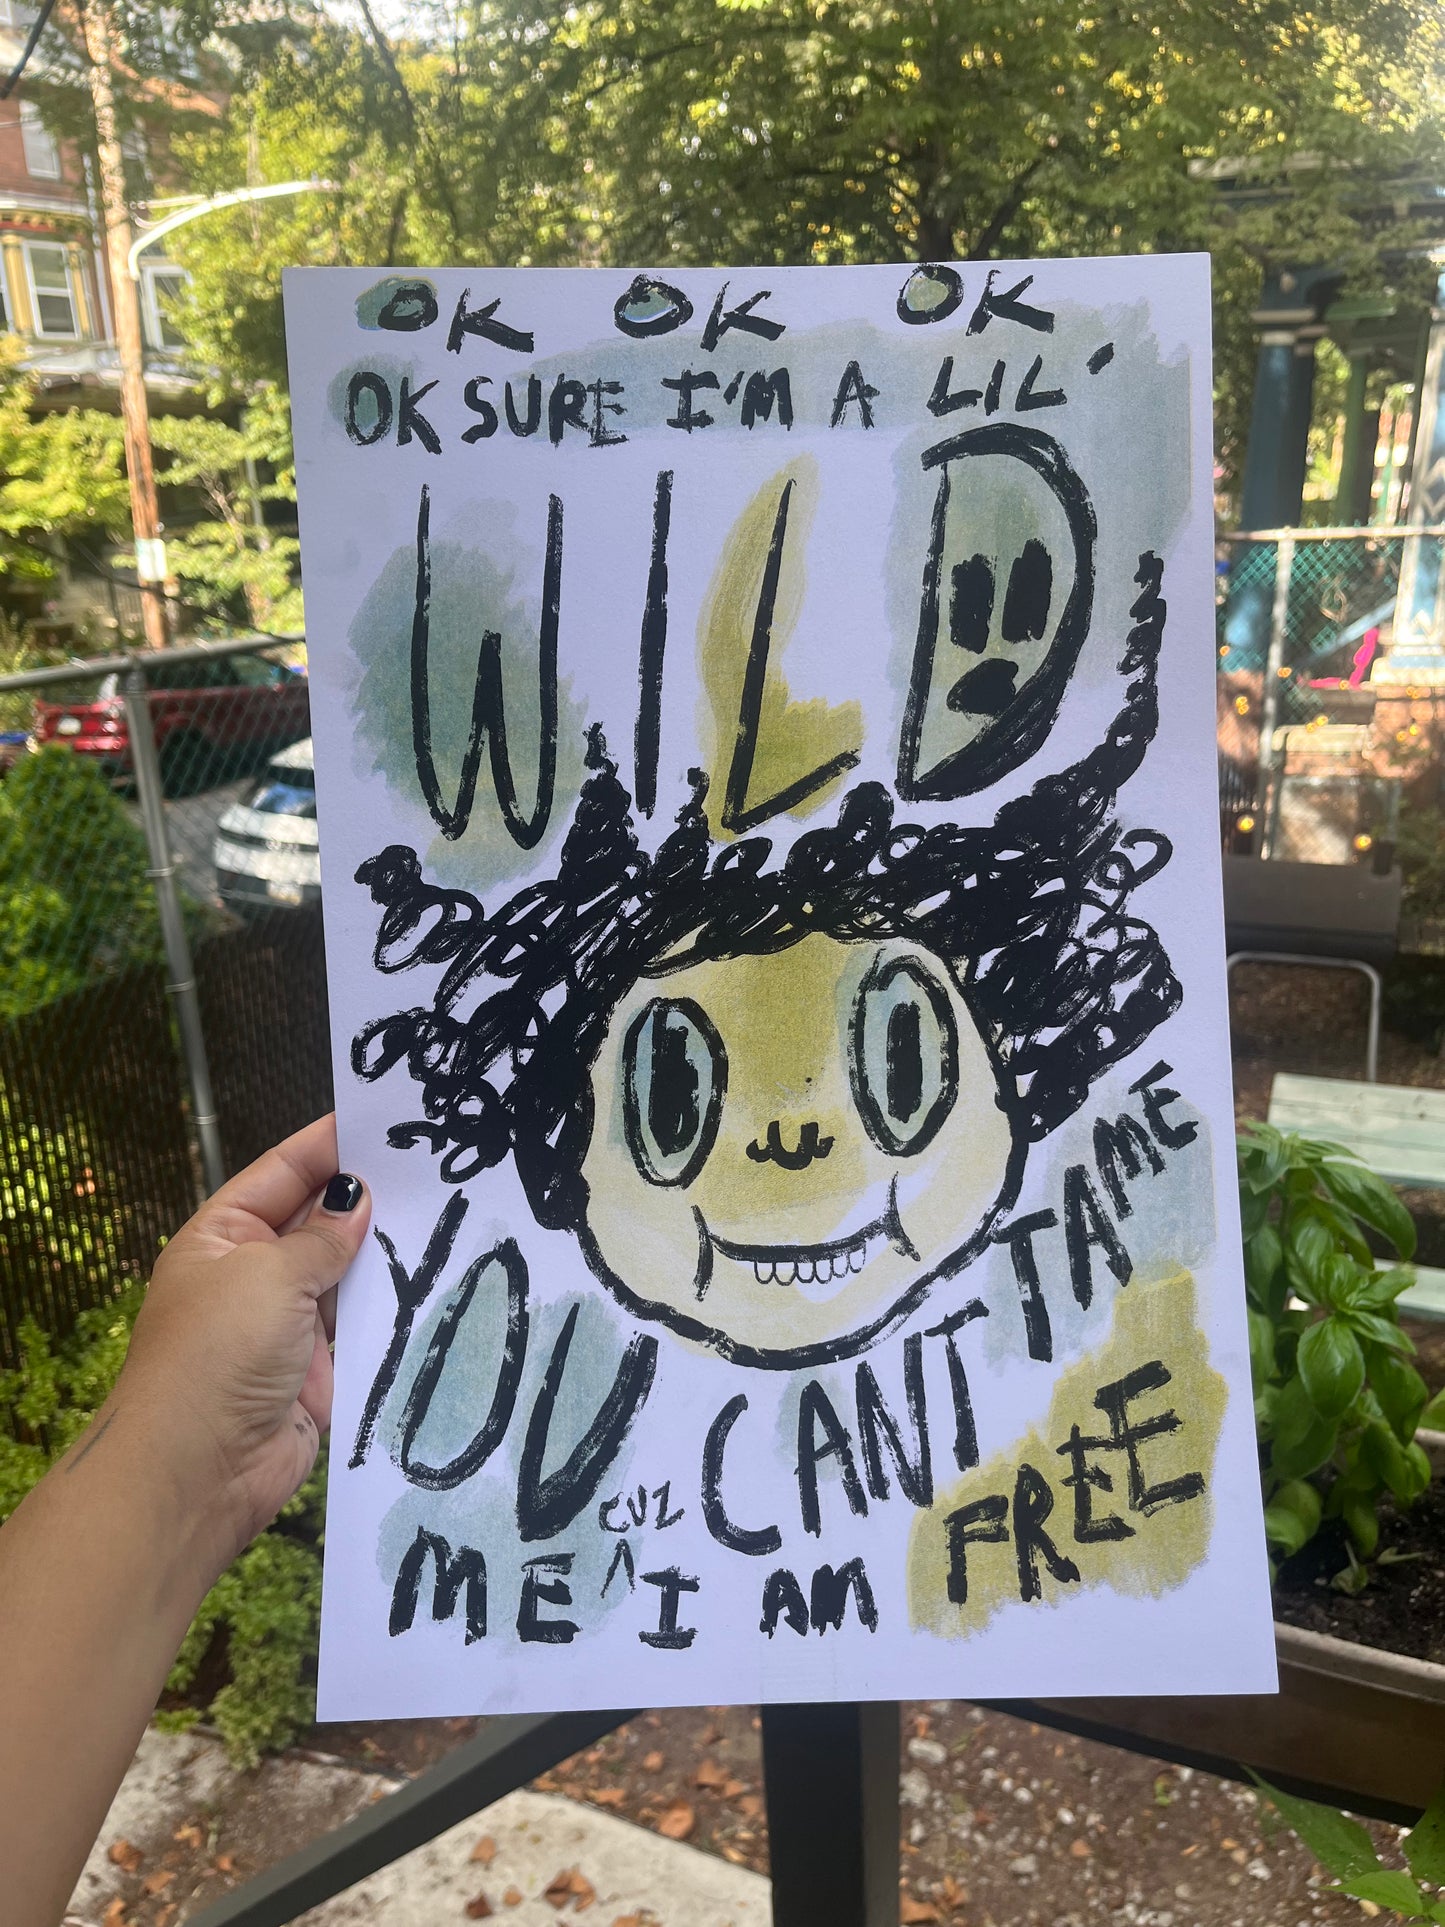 OK OK OK
OK SURE I'M A LIL'
WILD
YOU CANT TAME
ME CUZ I AM FREE